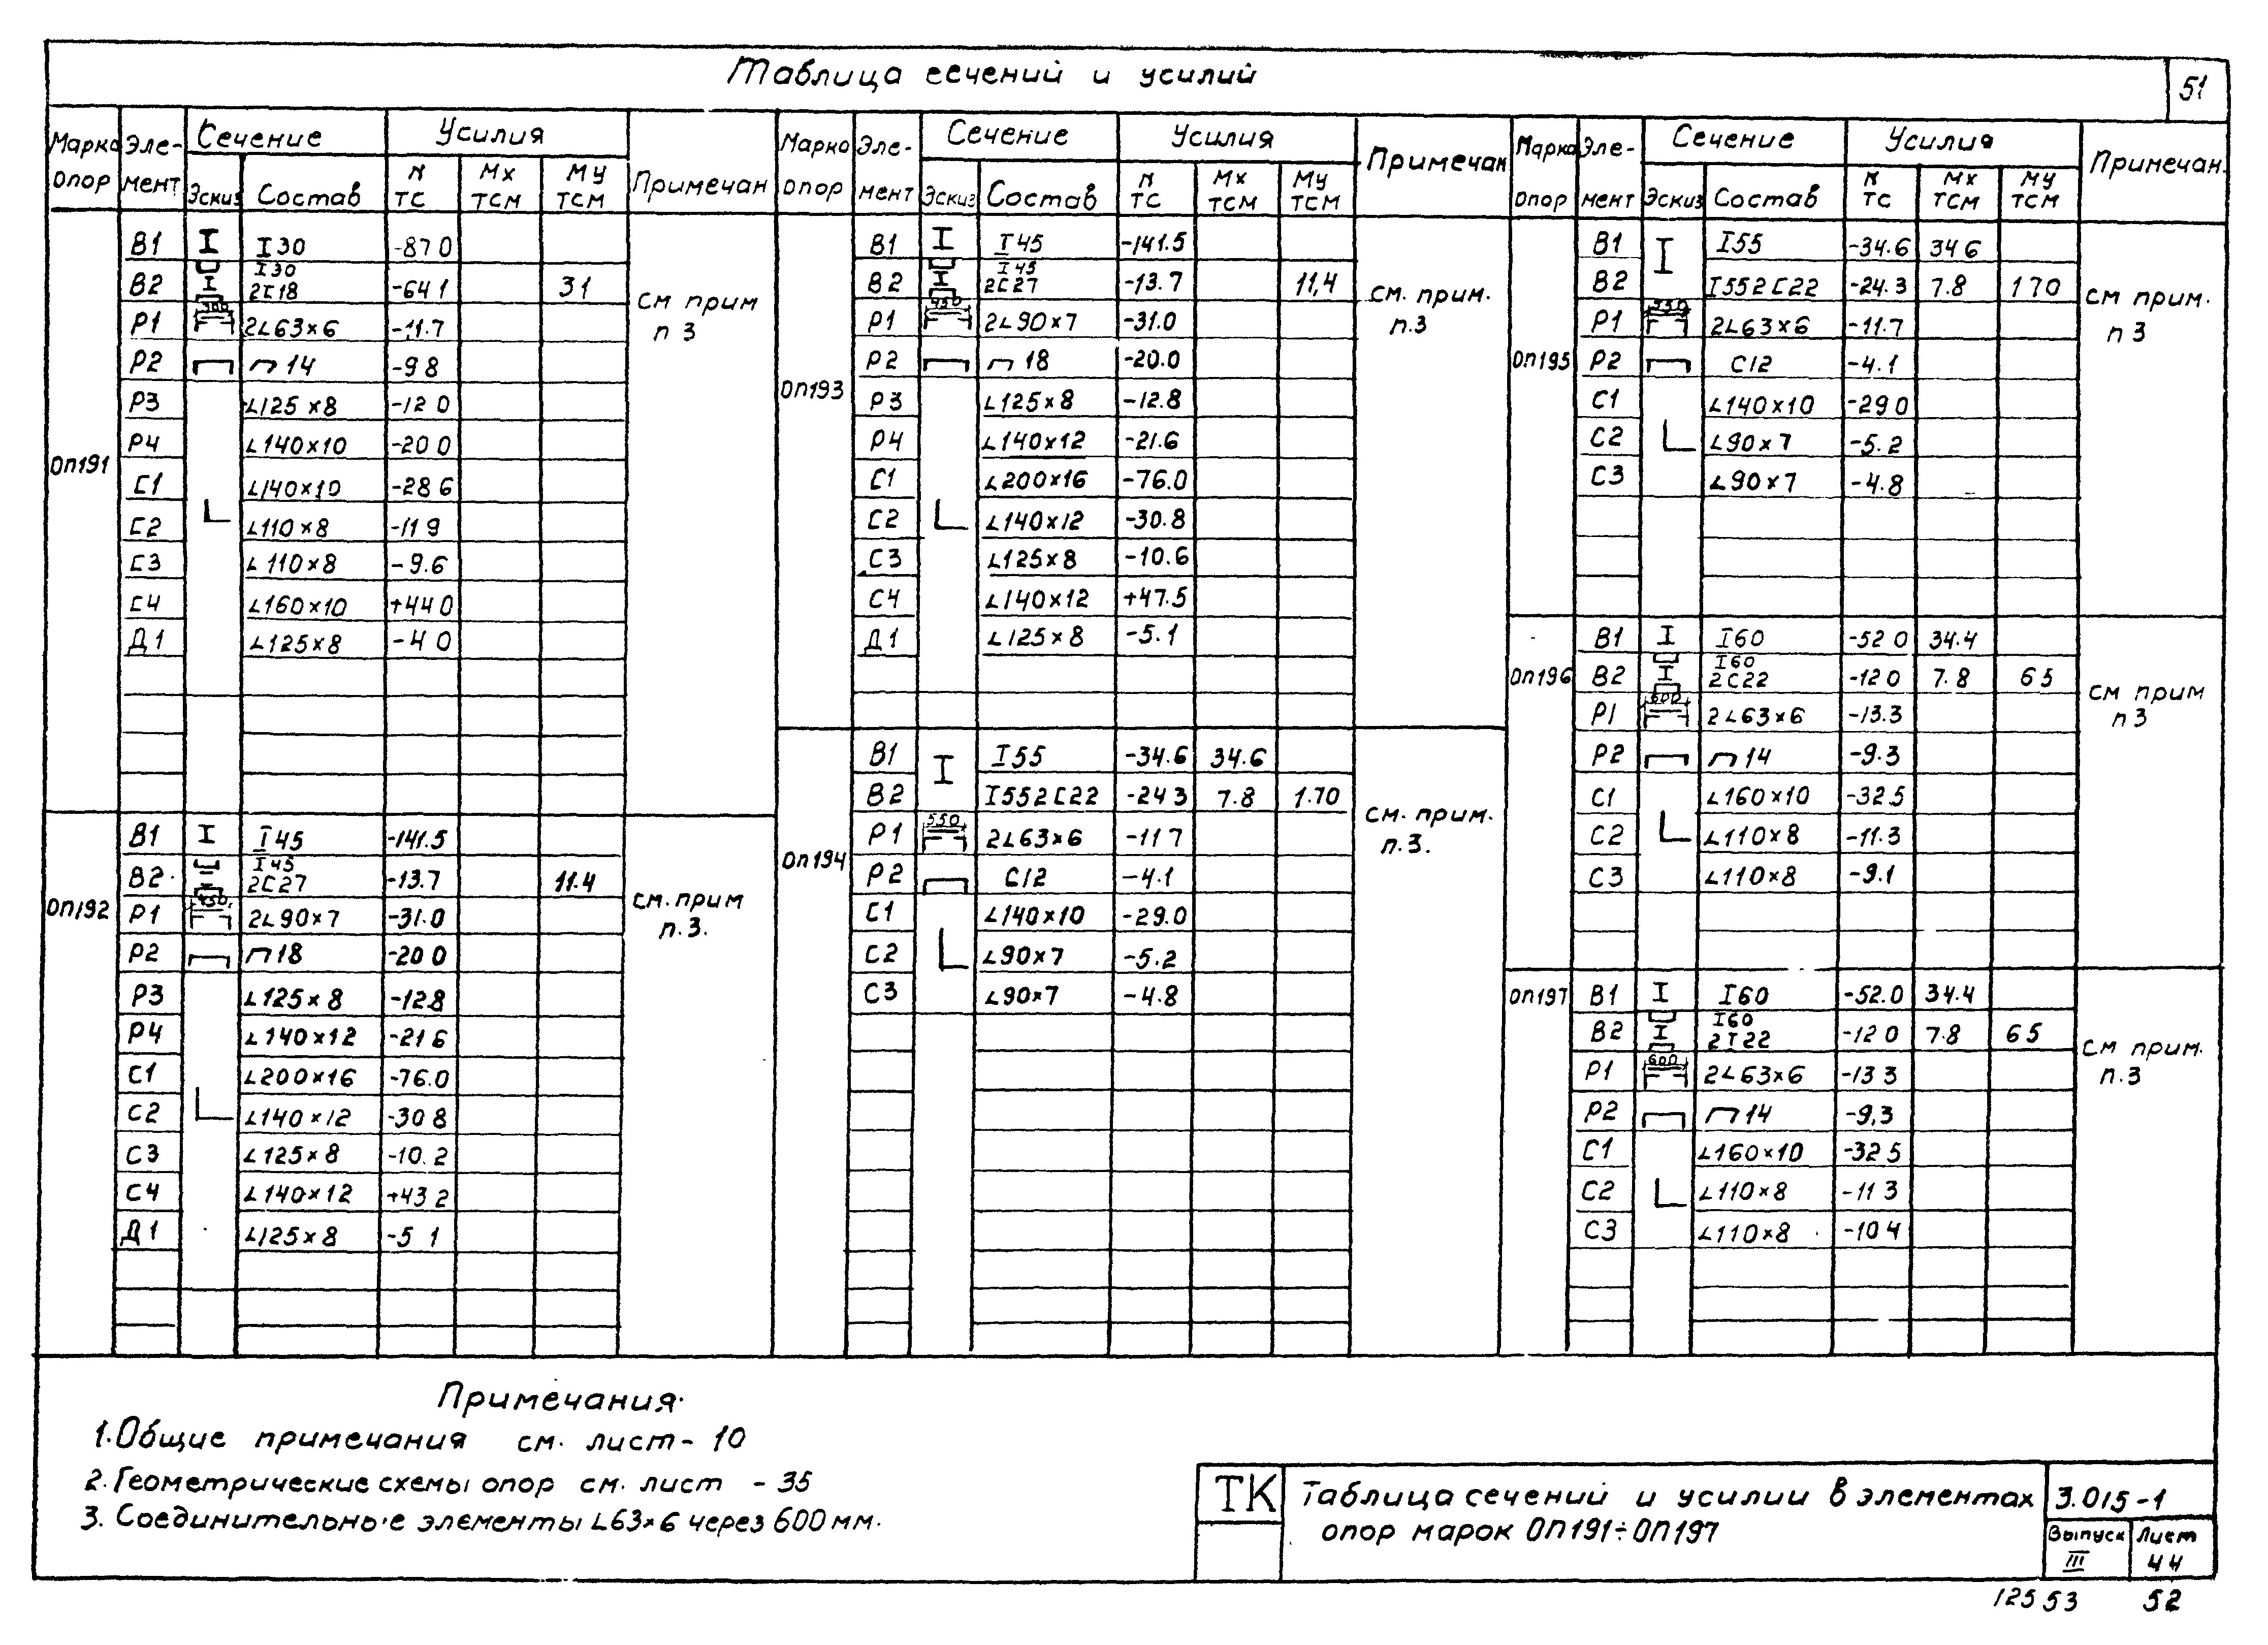 Таблица сечений и усилий
51
Марка опор Эле-мент Сечение Усилия Примечан
Эскиз Состав N тс Mx тсм My тсм
ОП191
В1 I30 -87 0
В2 I30 2[18 -64 1 3 1
Р1 300 2∟63×6 -11.7
см прим п 3
Р2 ⊓14 -9 8
Р3 ∟125×8 -12 0
Р4 ∟140×10 -20 0
С1 ∟140×10 -28 6
С2 ∟110×8 -11 9
С3 ∟110×8 -9.6
С4 ∟160×10 +44 0
Д1 ∟125×8 -4 0
ОП192
В1 I45 -141.5
В2 I45 2[27 -13.7 11.4
Р1 450 2∟90×7 -31.0
см. прим п.3.
Р2 ⊓18 -20 0
Р3 ∟125×8 -12 8
Р4 ∟140×12 -21 6
С1 ∟200×16 -76.0
С2 ∟140×12 -30 8
С3 ∟125×8 -10.2
С4 ∟140×12 +43 2
Д1 ∟125×8 -5 1
Марка опор Эле-мент Сечение Усилия Примечан
Эскиз Состав N тс Mx тсм My тсм
ОП193
В1 I45 -141.5
В2 I45 2[27 -13.7 11,4
Р1 450 2∟90×7 -31.0
см. прим. п.3
Р2 ⊓18 -20.0
Р3 ∟125×8 -12.8
Р4 ∟140×12 -21.6
С1 ∟200×16 -76.0
С2 ∟140×12 -30.8
С3 ∟125×8 -10.6
С4 ∟140×12 +47.5
Д1 ∟125×8 -5.1
ОП194
В1 I55 -34.6 34.6
В2 I55 2[22 -24 3 7.8 1.70
Р1 550 2∟63×6 -11 7
см. прим. п.3.
Р2 С12 -4.1
С1 ∟140×10 -29.0
С2 ∟90×7 -5.2
С3 ∟90×7 -4.8
Марка опор Эле-мент Сечение Усилия Примечан.
Эскиз Состав N тс Mx тсм My тсм
ОП195
В1 I55 -34.6 34 6
В2 I55 2[22 -24.3 7.8 1 70
Р1 550 2∟63×6 -11.7
см прим. п 3
Р2 С12 -4.1
С1 ∟140×10 -29 0
С2 ∟90×7 -5.2
С3 ∟90×7 -4.8
ОП196
В1 I60 -52 0 34.4
В2 I60 2С22 -12 0 7.8 6 5
Р1 600 2∟63×6 -13.3
см прим п 3
Р2 ⊓14 -9.3
С1 ∟160×10 -32 5
С2 ∟110×8 -11.3
С3 ∟110×8 -9.1
ОП197
В1 I60 -52.0 34.4
В2 I60 2I22 -12 0 7.8 6 5
Р1 600 2∟63×6 -13 3
см прим. п.3
Р2 ⊓14 -9,3
С1 ∟160×10 -32 5
С2 ∟110×8 -11 3
С3 ∟110×8 -10 4
Примечания.
1. Общие примечания см. лист - 10
2. Геометрические схемы опор см. лист - 35
3. Соединительные элементы ∟63×6 через 600 мм.
ТК
Таблица сечений и усилии в элементах
опор марок ОП191÷ОП197
3.015-1
Выпуск III
Лист 44
12553 52